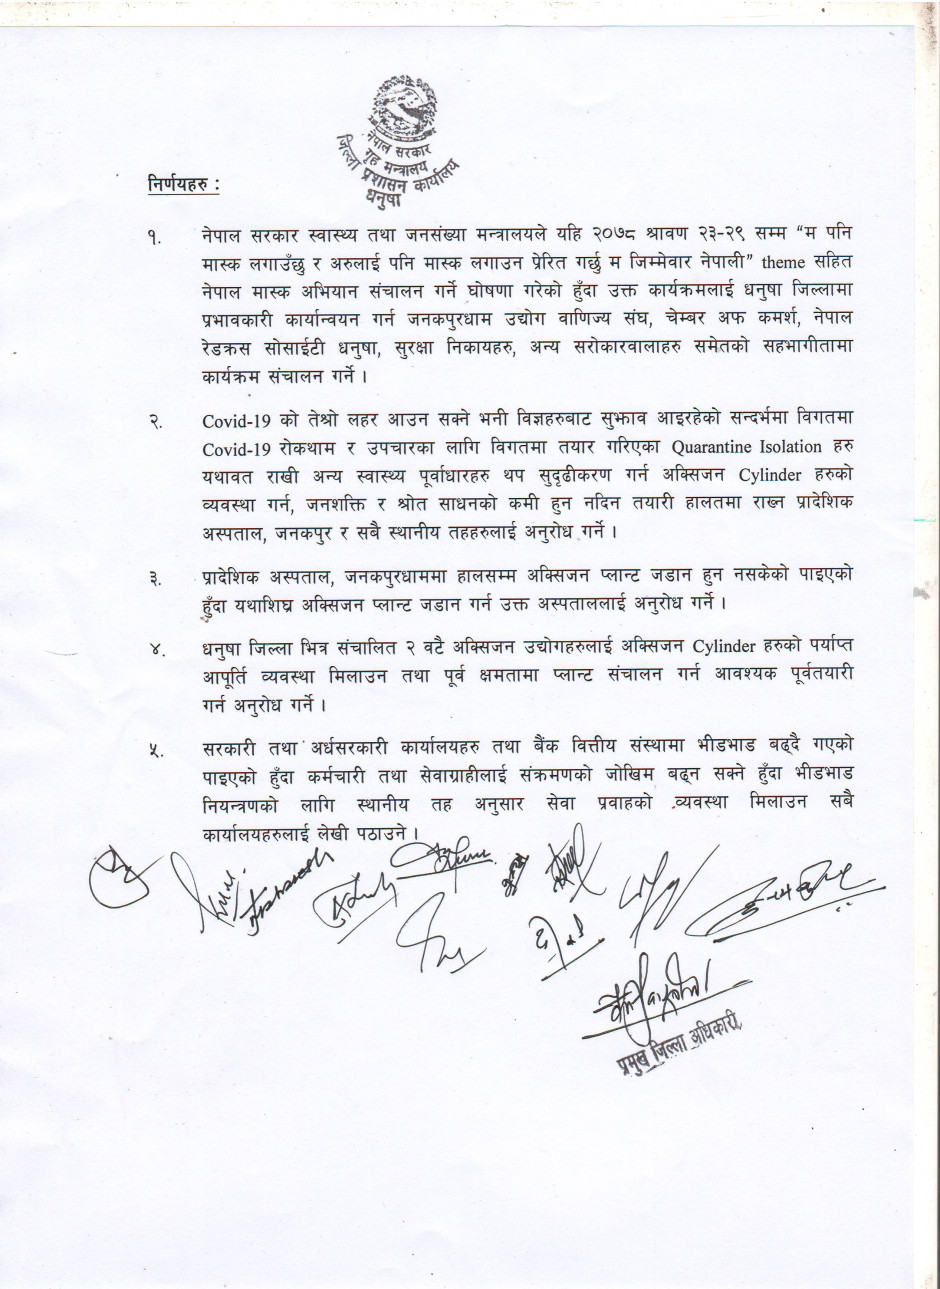 नेपाल सरकार
गृह मन्त्रालय
जिल्ला प्रशासन कार्यालय
धनुषा
निर्णयहरु :
१. नेपाल सरकार स्वास्थ्य तथा जनसंख्या मन्त्रालयले यहि २०७८ श्रावण २३-२९ सम्म “म पनि
मास्क लगाउँछु र अरुलाई पनि मास्क लगाउन प्रेरित गर्छु म जिम्मेवार नेपाली” theme सहित
नेपाल मास्क अभियान संचालन गर्ने घोषणा गरेको हुँदा उक्त कार्यक्रमलाई धनुषा जिल्लामा
प्रभावकारी कार्यान्वयन गर्न जनकपुरधाम उद्योग वाणिज्य संघ, चेम्बर अफ कमर्श, नेपाल
रेडक्रस सोसाईटी धनुषा, सुरक्षा निकायहरु, अन्य सरोकारवालाहरु समेतको सहभागीतामा
कार्यक्रम संचालन गर्ने ।
२. Covid-19 को तेश्रो लहर आउन सक्ने भनी विज्ञहरुबाट सुझाव आइरहेको सन्दर्भमा विगतमा
Covid-19 रोकथाम र उपचारका लागि विगतमा तयार गरिएका Quarantine Isolation हरु
यथावत राखी अन्य स्वास्थ्य पूर्वाधारहरु थप सुदृढीकरण गर्न अक्सिजन Cylinder हरुको
व्यवस्था गर्न, जनशक्ति र श्रोत साधनको कमी हुन नदिन तयारी हालतमा राख्न प्रादेशिक
अस्पताल, जनकपुर र सबै स्थानीय तहहरुलाई अनुरोध गर्ने ।
३. प्रादेशिक अस्पताल, जनकपुरधाममा हालसम्म अक्सिजन प्लान्ट जडान हुन नसकेको पाइएको
हुँदा यथाशिघ्र अक्सिजन प्लान्ट जडान गर्न उक्त अस्पताललाई अनुरोध गर्ने ।
४. धनुषा जिल्ला भित्र संचालित २ वटै अक्सिजन उद्योगहरुलाई अक्सिजन Cylinder हरुको पर्याप्त
आपूर्ति व्यवस्था मिलाउन तथा पूर्व क्षमतामा प्लान्ट संचालन गर्न आवश्यक पूर्वतयारी
गर्न अनुरोध गर्ने ।
५. सरकारी तथा अर्धसरकारी कार्यालयहरु तथा बैंक वित्तीय संस्थामा भीडभाड बढ्दै गएको
पाइएको हुँदा कर्मचारी तथा सेवाग्राहीलाई संक्रमणको जोखिम बढ्न सक्ने हुँदा भीडभाड
नियन्त्रणको लागि स्थानीय तह अनुसार सेवा प्रवाहको व्यवस्था मिलाउन सबै
कार्यालयहरुलाई लेखी पठाउने ।
प्रमुख जिल्ला अधिकारी